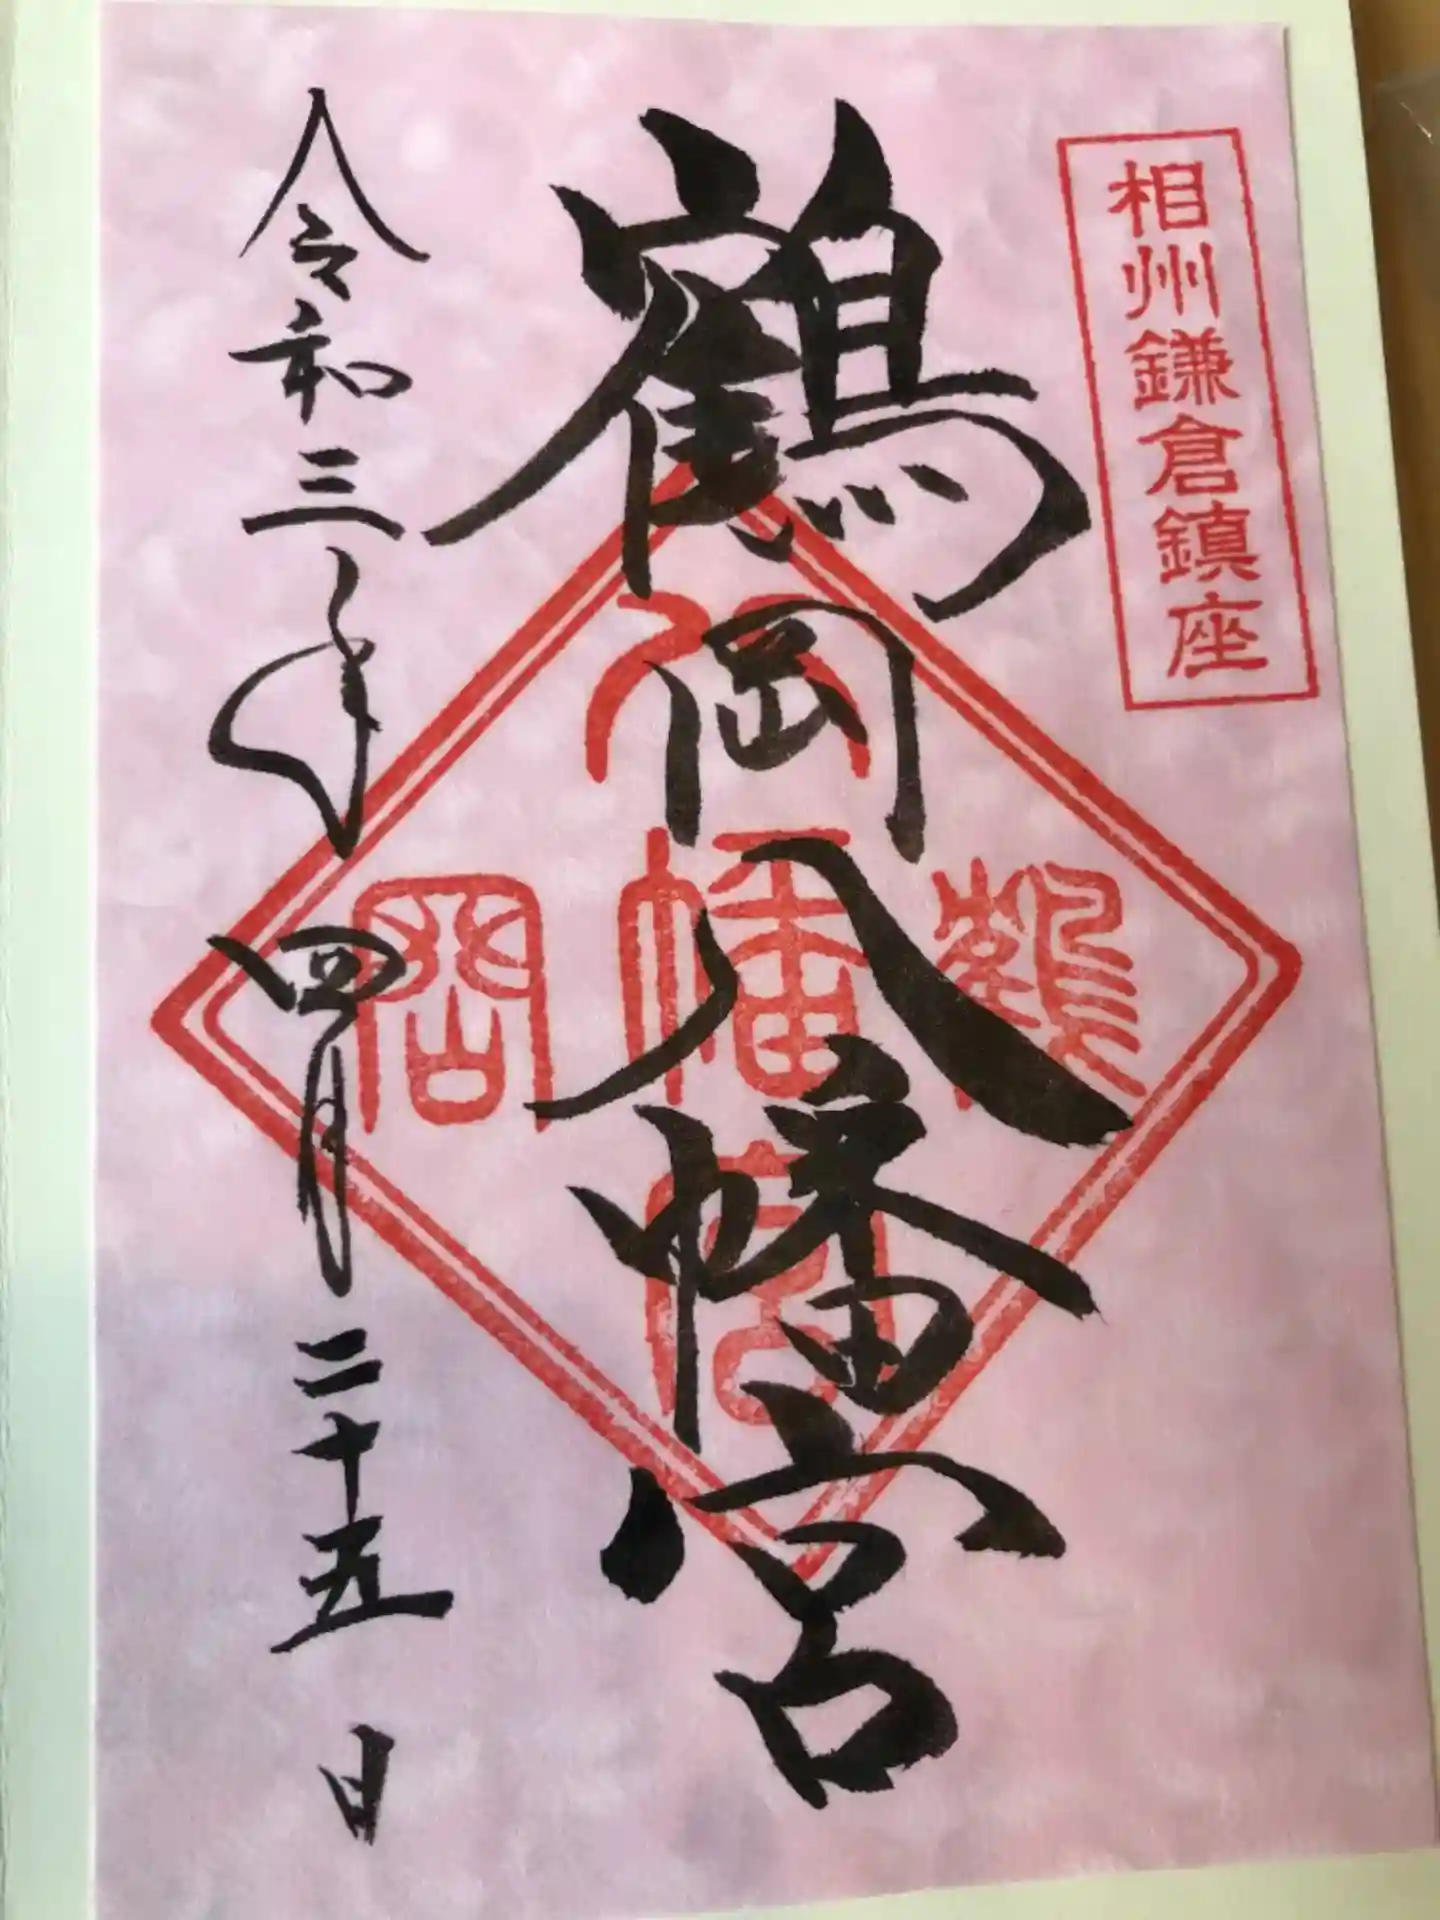 相州鎌倉鎮座
鶴岡八幡宮
八
鶴幡岡
宮
令和三年四月二十五日